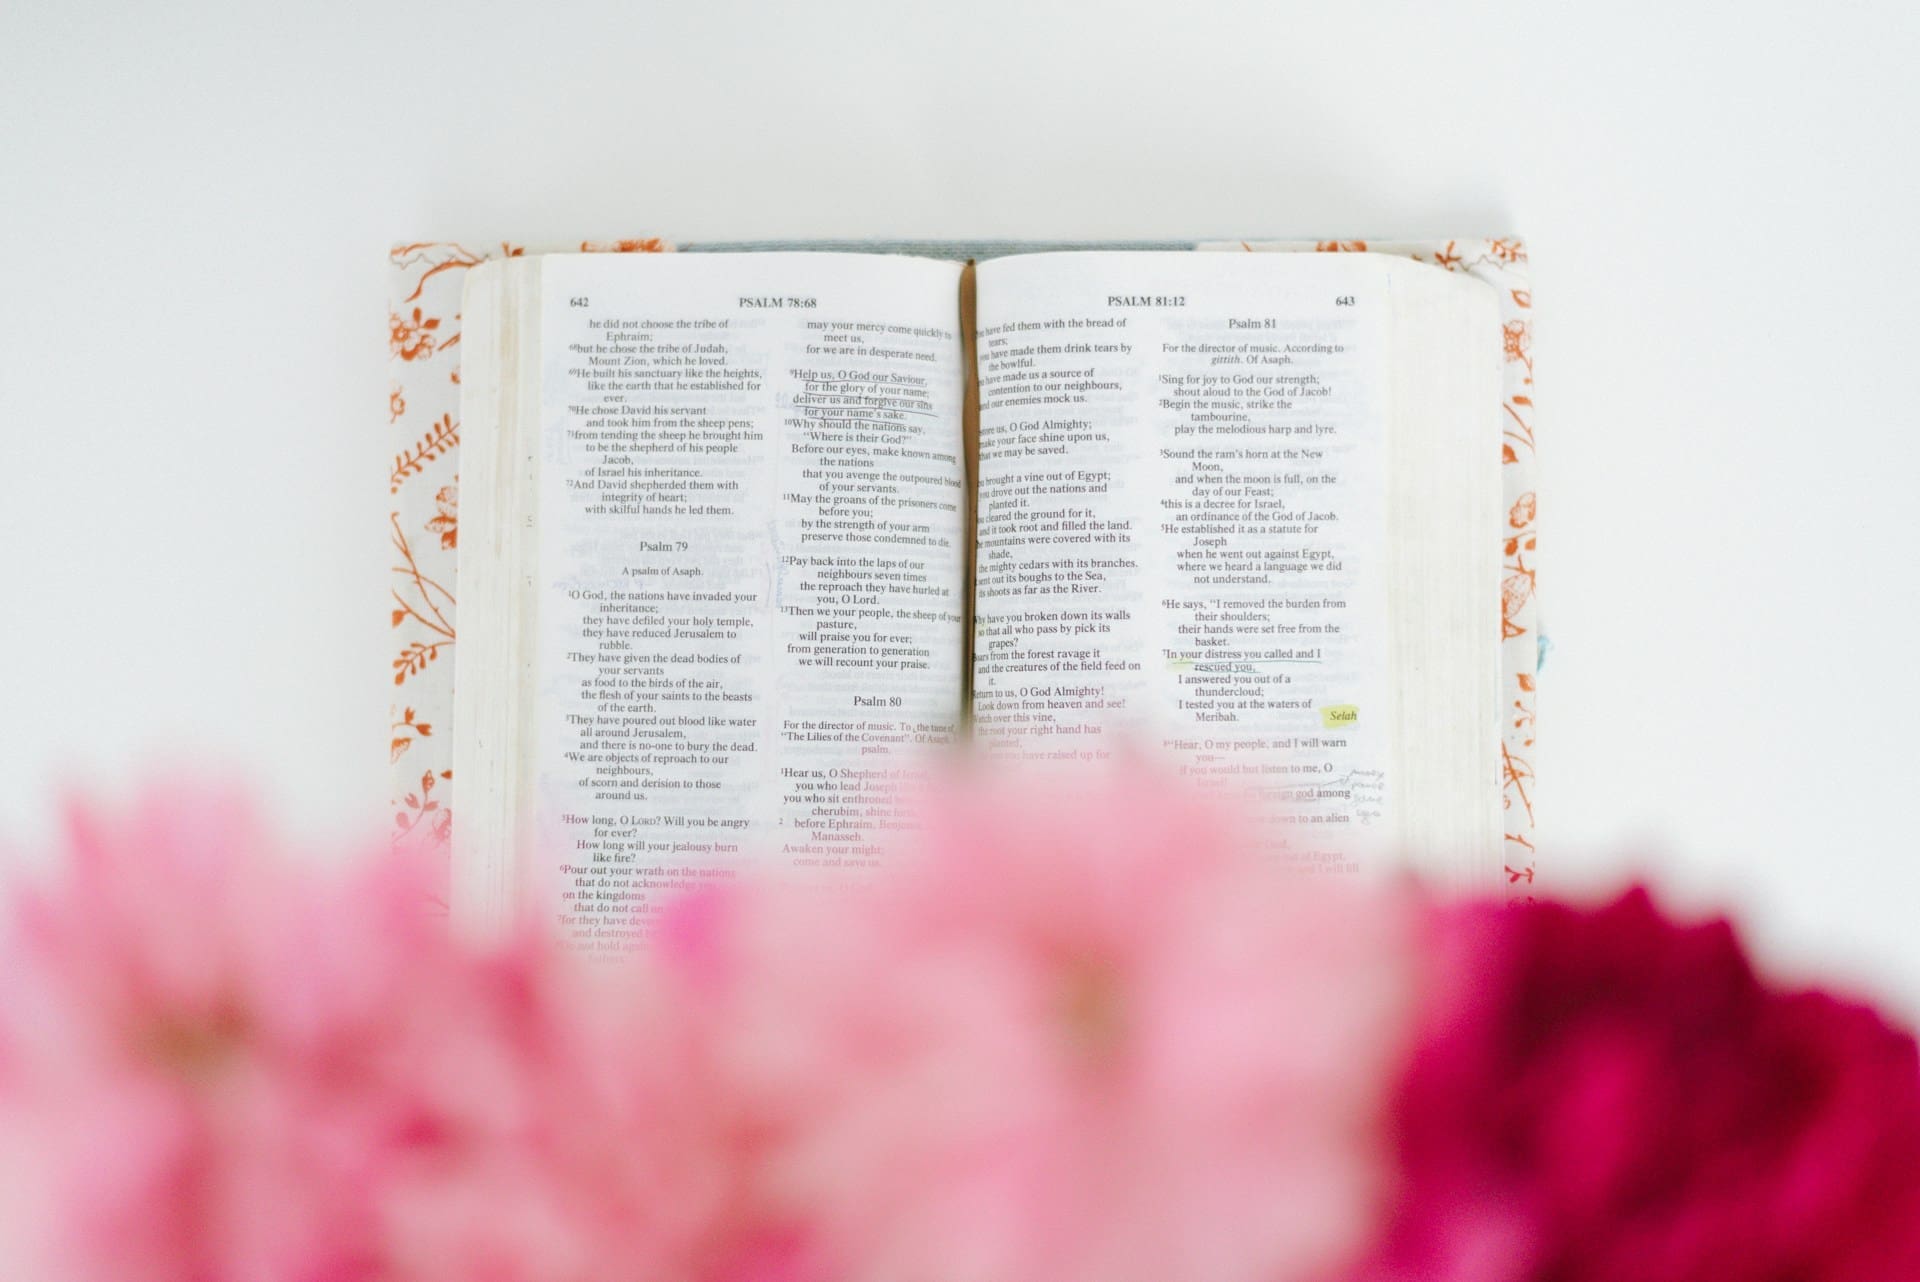 642
PSALM 78:68
he did not choose the tribe of
Ephraim;
68but he chose the tribe of Judah,
Mount Zion, which he loved.
69He built his sanctuary like the heights,
like the earth that he established for
ever.
70He chose David his servant
and took him from the sheep pens;
71from tending the sheep he brought him
to be the shepherd of his people
Jacob,
of Israel his inheritance.
72And David shepherded them with
integrity of heart;
with skilful hands he led them.
Psalm 79
A psalm of Asaph.
1O God, the nations have invaded your
inheritance;
they have defiled your holy temple,
they have reduced Jerusalem to
rubble.
2They have given the dead bodies of
your servants
as food to the birds of the air,
the flesh of your saints to the beasts
of the earth.
3They have poured out blood like water
all around Jerusalem,
and there is no-one to bury the dead.
4We are objects of reproach to our
neighbours,
of scorn and derision to those
around us.
5How long, O LORD? Will you be angry
for ever?
How long will your jealousy burn
like fire?
6Pour out your wrath on the nations
that do not acknowledge
on the kingdoms
that do not call on
7for they have
and destroyed
Do not hold
may your mercy come quickly to
meet us,
for we are in desperate need.
9Help us, O God our Saviour,
for the glory of your name;
deliver us and forgive our sins
for your name's sake.
10Why should the nations say,
"Where is their God?"
Before our eyes, make known among
the nations
that you avenge the outpoured blood
of your servants.
11May the groans of the prisoners come
before you;
by the strength of your arm
preserve those condemned to die.
12Pay back into the laps of our
neighbours seven times
the reproach they have hurled at
you, O Lord.
13Then we your people, the sheep of your
pasture,
will praise you for ever;
from generation to generation
we will recount your praise.
Psalm 80
For the director of music. To the tune of
"The Lilies of the Covenant". Of Asaph. A
psalm.
1Hear us, O Shepherd of Israel,
you who lead Joseph
you who sit enthroned
cherubim, shine forth
2 before Ephraim, Benjamin
Manasseh.
Awaken your might;
come and save us.
PSALM 81:12
643
have fed them with the bread of
tears;
have made them drink tears by
the bowlful.
have made us a source of
contention to our neighbours,
and our enemies mock us.
us, O God Almighty;
make your face shine upon us,
that we may be saved.
brought a vine out of Egypt;
you drove out the nations and
planted it.
cleared the ground for it,
and it took root and filled the land.
mountains were covered with its
shade,
the mighty cedars with its branches.
out its boughs to the Sea,
its shoots as far as the River.
Why have you broken down its walls
so that all who pass by pick its
grapes?
from the forest ravage it
and the creatures of the field feed on
it.
Return to us, O God Almighty!
Look down from heaven and see!
Watch over this vine,
the root your right hand has
planted,
you have raised up for
Psalm 81
For the director of music. According to
gittith. Of Asaph.
1Sing for joy to God our strength;
shout aloud to the God of Jacob!
2Begin the music, strike the
tambourine,
play the melodious harp and lyre.
3Sound the ram's horn at the New
Moon,
and when the moon is full, on the
day of our Feast;
4this is a decree for Israel,
an ordinance of the God of Jacob.
5He established it as a statute for
Joseph
when he went out against Egypt,
where we heard a language we did
not understand.
6He says, "I removed the burden from
their shoulders;
their hands were set free from the
basket.
7In your distress you called and I
rescued you,
I answered you out of a
thundercloud;
I tested you at the waters of
Meribah. Selah
8"Hear, O my people, and I will warn
you—
if you would but listen to me, O
Israel!
foreign god among
down to an alien
out of Egypt.
and I will fill